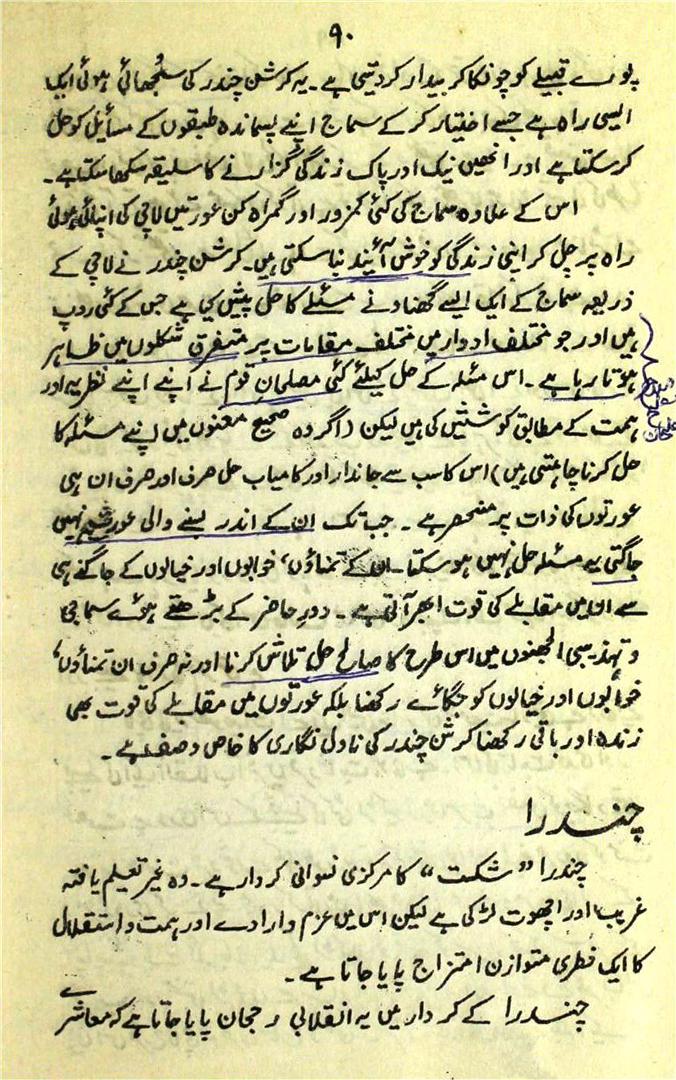 ۹۰
پورے قبیلے کو چونکا کر بیدار کر دیتی ہے۔ یہ کرشن چندر کی سُجھائی ہوئی ایک
ایسی راہ ہے جسے اختیار کر کے سماج اپنے پسماندہ طبقوں کے مسائل کو حل
کر سکتا ہے اور انھیں نیک اور پاک زندگی گزارنے کا سلیقہ سکھا سکتا ہے۔
اس کے علاوہ سماج کی کئی کمزور اور گمراہ کن عورتیں لاچی کی اپنائی ہوئی
راہ پر چل کر اپنی زندگی کو خوش آئیند بنا سکتی ہیں۔ کرشن چندر نے لاچی کے
ذریعہ سماج کے ایک ایسے گھناونے مسئلے کا حل پیش کیا ہے جس کے کئی روپ
ہیں اور جو مختلف ادوار میں مختلف مقامات پر متفرق شکلوں میں ظاہر
ہوتا رہا ہے۔ اس مسئلہ کے حل کیلئے کئی مصلحانِ قوم نے اپنے اپنے نظریہ اور
ہمت کے مطابق کوششیں کی ہیں لیکن (اگر وہ صحیح معنوں میں اپنے مسئلہ کا
حل کرنا چاہتی ہیں) اس کا سب سے جاندار اور کامیاب حل صرف اور صرف ان ہی
عورتوں کی ذات پر منحصر ہے۔ جب تک ان کے اندر بسنے والی عورت نہیں
جاگتی یہ مسئلہ حل نہیں ہو سکتا۔ ان کے تمناؤں، خوابوں اور خیالوں کے جاگنے ہی
سے ان میں مقابلے کی قوت ابھر آتی ہے۔ دورِ حاضر کے بڑھتے ہوئے سماجی
و تہذیبی الجھنوں میں اس طرح کا صالح حل تلاش کرنا اور نہ صرف ان تمناؤں،
خوابوں اور خیالوں کو جگائے رکھنا بلکہ عورتوں میں مقابلے کی قوت بھی
زندہ اور باقی رکھنا کرشن چندر کی ناول نگاری کا خاص وصف ہے۔
چندرا
چندرا "شکست" کا مرکزی نسوانی کردار ہے۔ وہ غیر تعلیم یافتہ
غریب اور اچھوت لڑکی ہے لیکن اس میں عزم و ارادے اور ہمت و استقلال
کا ایک فطری متوازن امتزاج پایا جاتا ہے۔
چندرا کے کردار میں یہ انقلابی رجحان پایا جاتا ہے کہ معاشرے